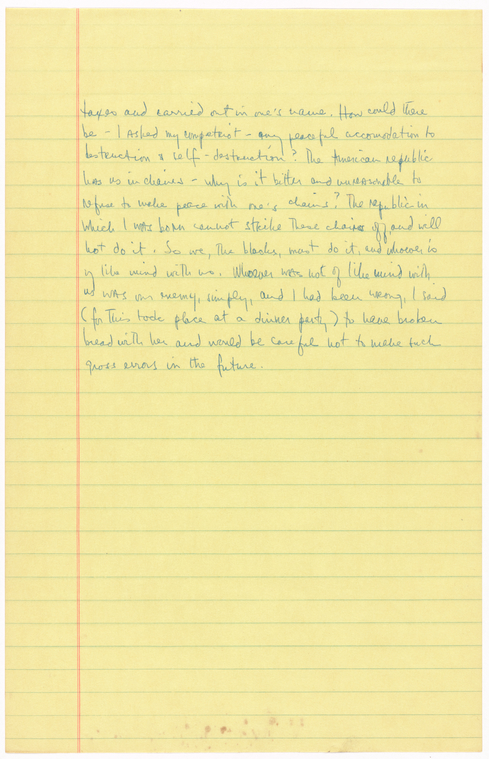 taxes and carried out in one's name. How could there
be - I asked my compatriot - any peaceful accomodation to
destruction & self-destruction? The American republic
has us in chains - why is it bitter and unreasonable to
refuse to make peace with one's chains? The republic in
which I was born cannot strike these chains off, and will
not do it. So we, the blacks, must do it, and whoever is
of like mind with us. Whoever was not of like mind with
us was our enemy, simply, and I had been wrong, I said
(for this took place at a dinner party) to have broken
bread with her and would be careful not to make such
gross errors in the future.